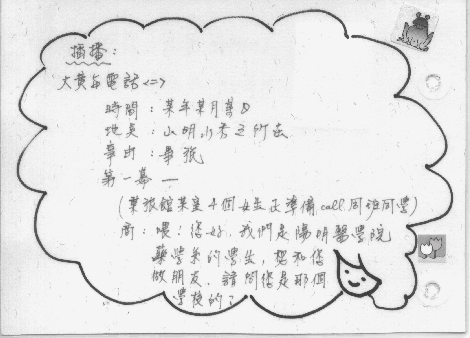 插播：
大黃与電話<二>
時間：某年某月某日
地點：小明小秀之所在
事由：畢旅
第一幕 —
(某旅館某室4個女生正準備call同班同學)
問：喂！您好，我們是陽明醫學院
藥學系的學生，想和您
做朋友，請問您是那個
學校的？